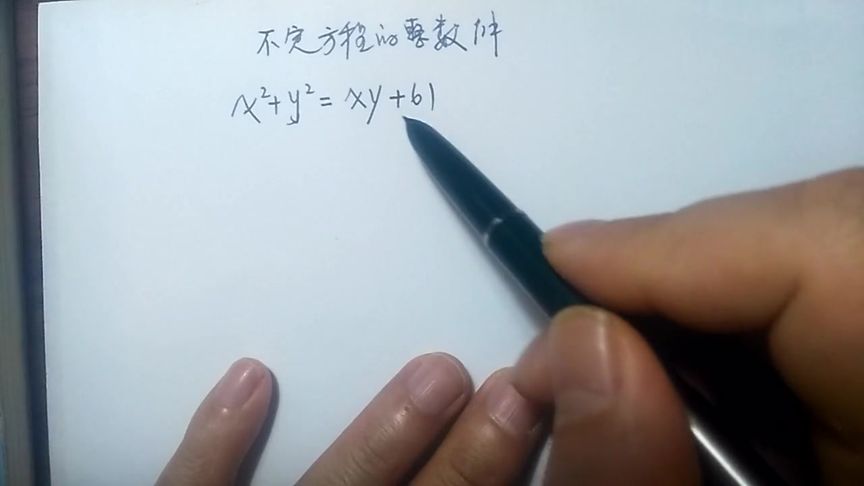 不定方程的整数解
x²+y²=xy+61